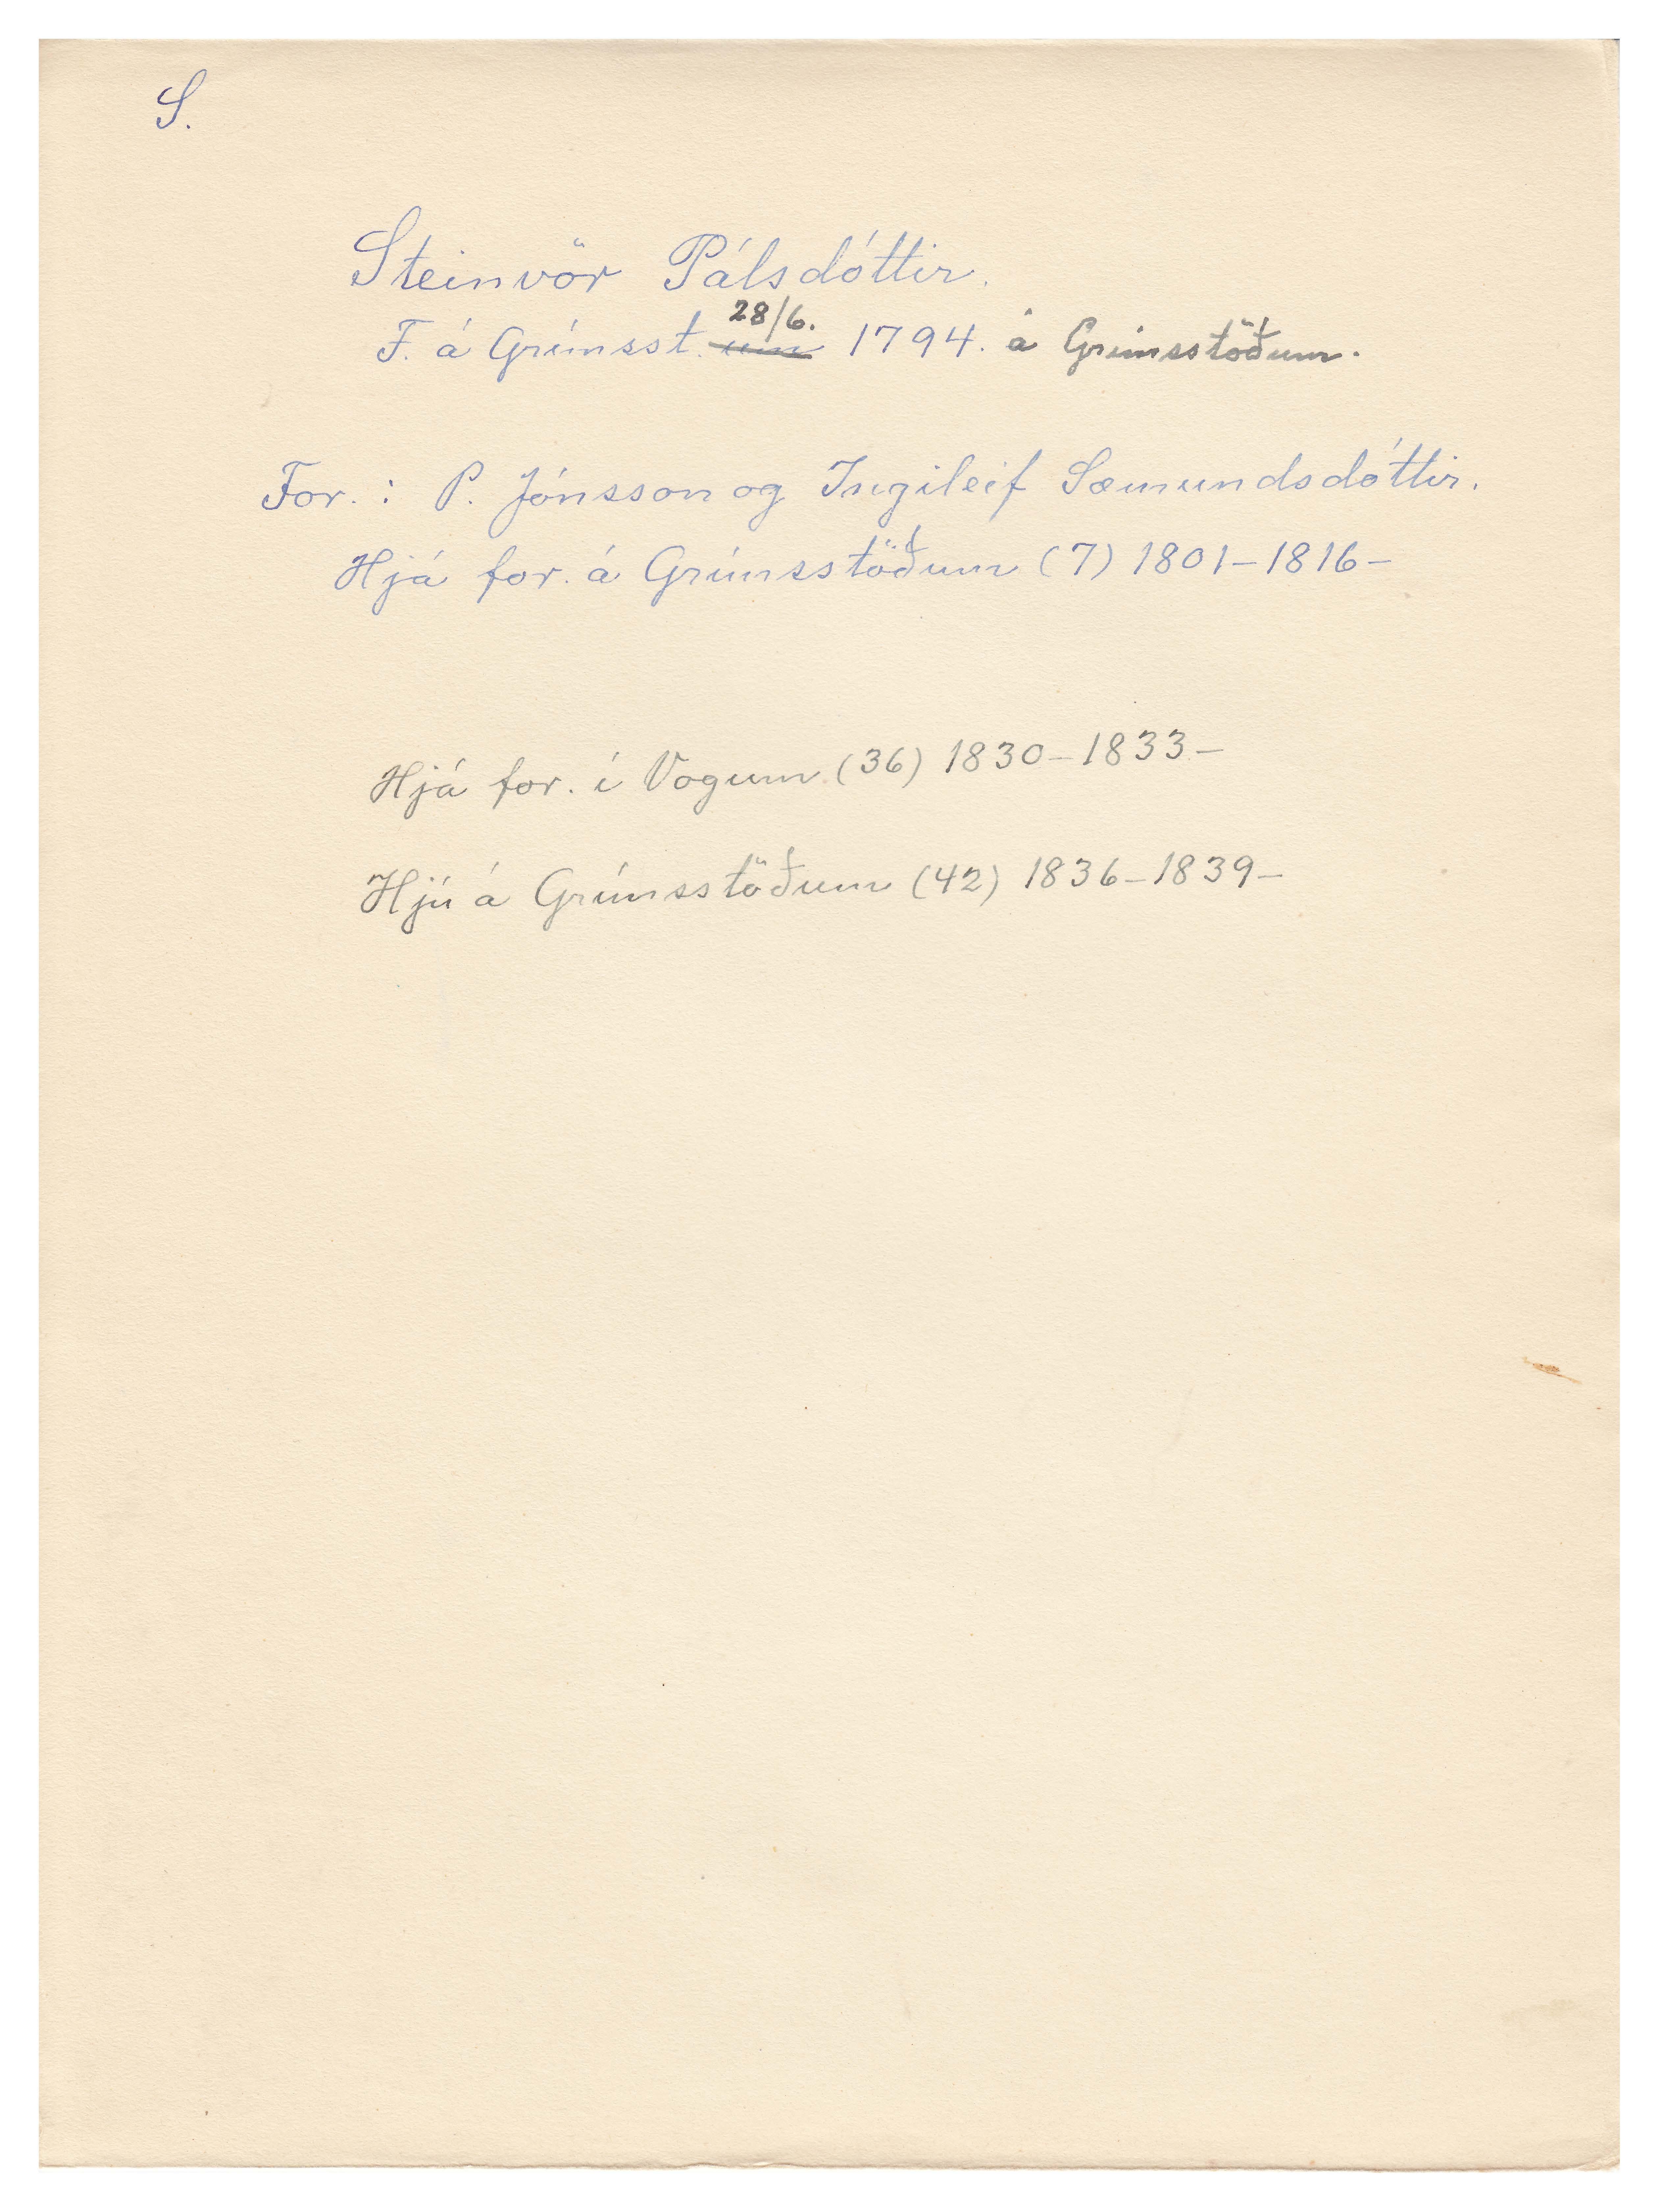 S.
Steinvör Pálsdóttir.
F. á Grímsst. um 28/6. 1794. á Grímsstöðum.
For.: P. Jónsson og Ingileif Sæmundsdóttir.
Hjá for. á Grímsstöðum (7) 1801-1816-
Hjá for. í Vogum (36) 1830-1833-
Hjú á Grímsstöðum (42) 1836-1839-